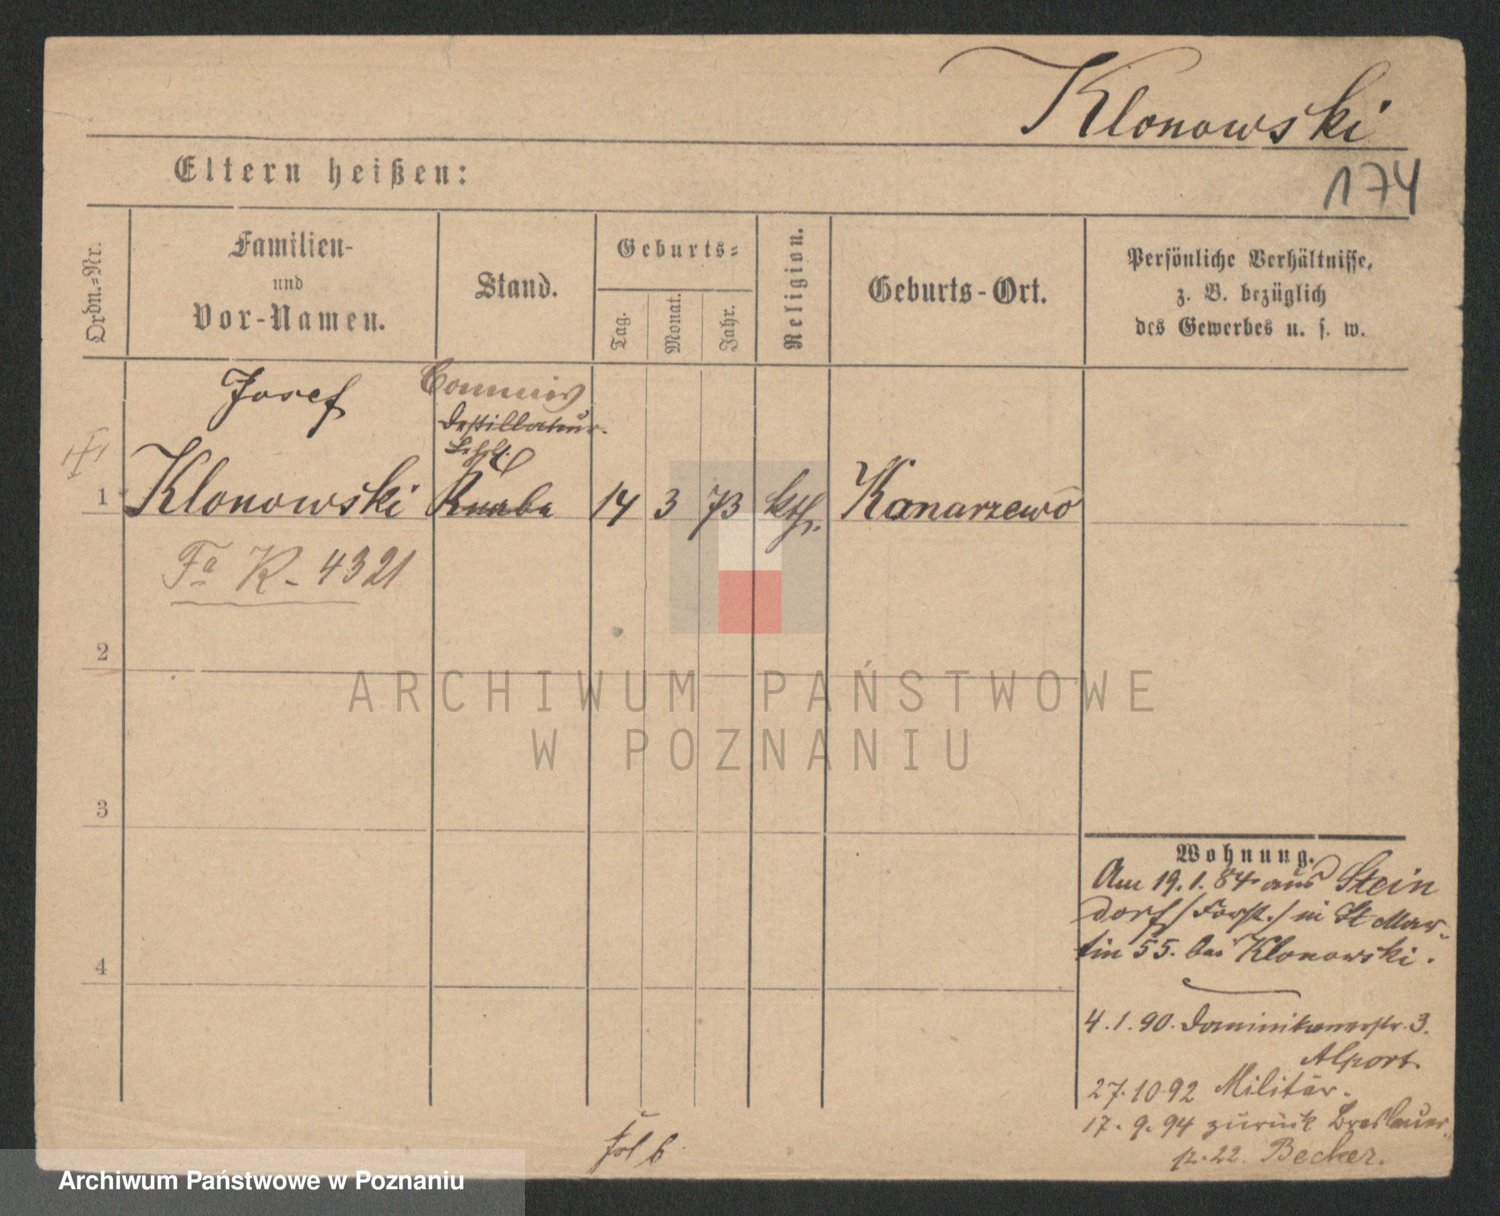 Klonowski
174
Eltern heißen:
Ordn.-Nr.
Familien-
und
Vor-Namen.
Stand.
Geburts-
Tag.
Monat.
Jahr.
Religion.
Geburts-Ort.
Persönliche Verhältnisse,
z. B. bezüglich
des Gewerbes u. s. w.
Josef
Commis
Destillateur-
Lehrl.
1 Klonowski Knabe 14 3 73 kth. Konarzewo
Fa K- 4321
2
3
4
Wohnung.
Am 19.1.84 aus Stein
dorf /Forst./ in St Mar-
tin 55. bei Klonowski.
4.1.90. Dominikanerstr. 3.
Alport.
27.10 92 Militär.
17.9.94 zurück Breslauer
22 Becker.
fol b
ARCHIWUM PAŃSTWOWE
W POZNANIU
Archiwum Państwowe w Poznaniu